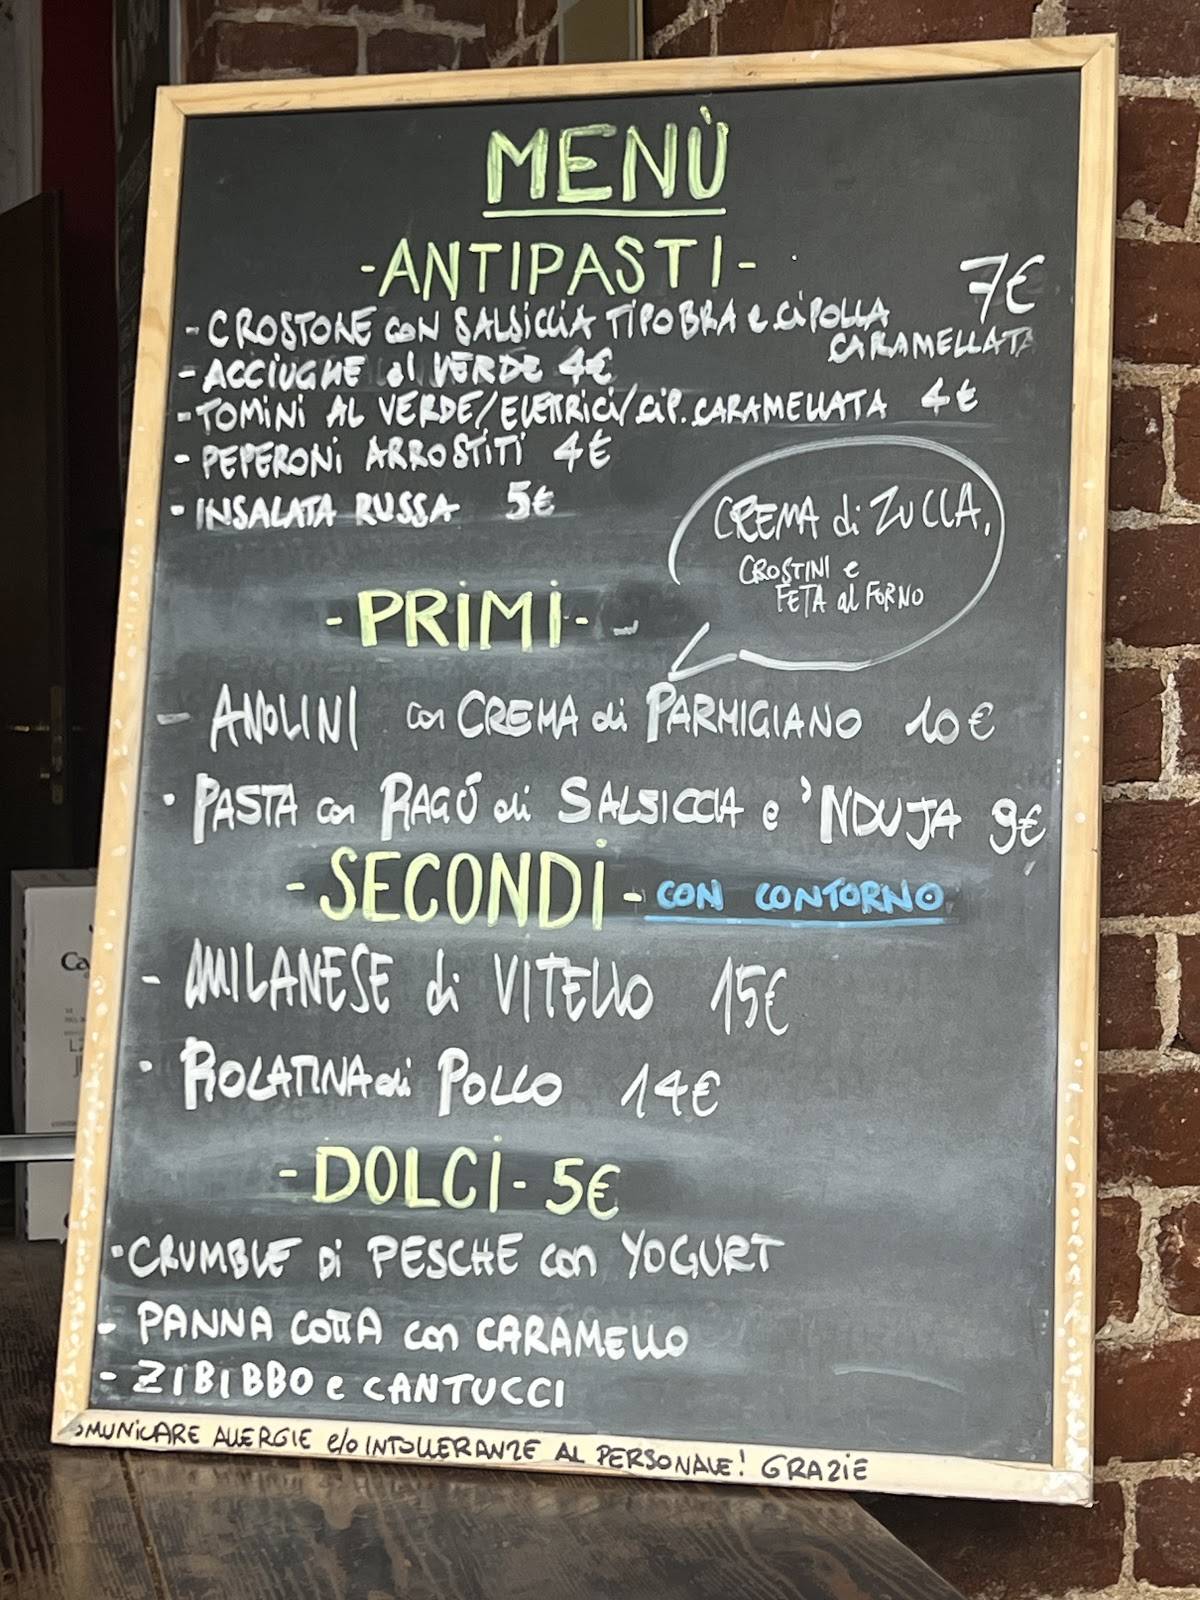 MENÙ
- ANTIPASTI -
- CROSTONE con SALSICCIA TIPO BRA e CIPOLLA CARAMELLATA 7€
- ACCIUGHE al VERDE 4€
- TOMINI AL VERDE/ELETTRICI/CIP. CARAMELLATA 4€
- PEPERONI ARROSTITI 4€
- INSALATA RUSSA 5€
CREMA di ZUCCA,
CROSTINI e
FETA al FORNO
- PRIMI -
- ANOLINI con CREMA di PARMIGIANO 10€
· PASTA con RAGÚ di SALSICCIA e 'NDUJA 9€
- SECONDI - CON CONTORNO
- MILANESE di VITELLO 15€
· ROLATINA di POLLO 14€
- DOLCI - 5€
· CRUMBLE Di PESCHE con YOGURT
- PANNA COTTA con CARAMELLO
- ZIBIBBO e CANTUCCI
OMUNICARE ALLERGIE e/o INTOLLERANZE AL PERSONALE! GRAZIE
Ca